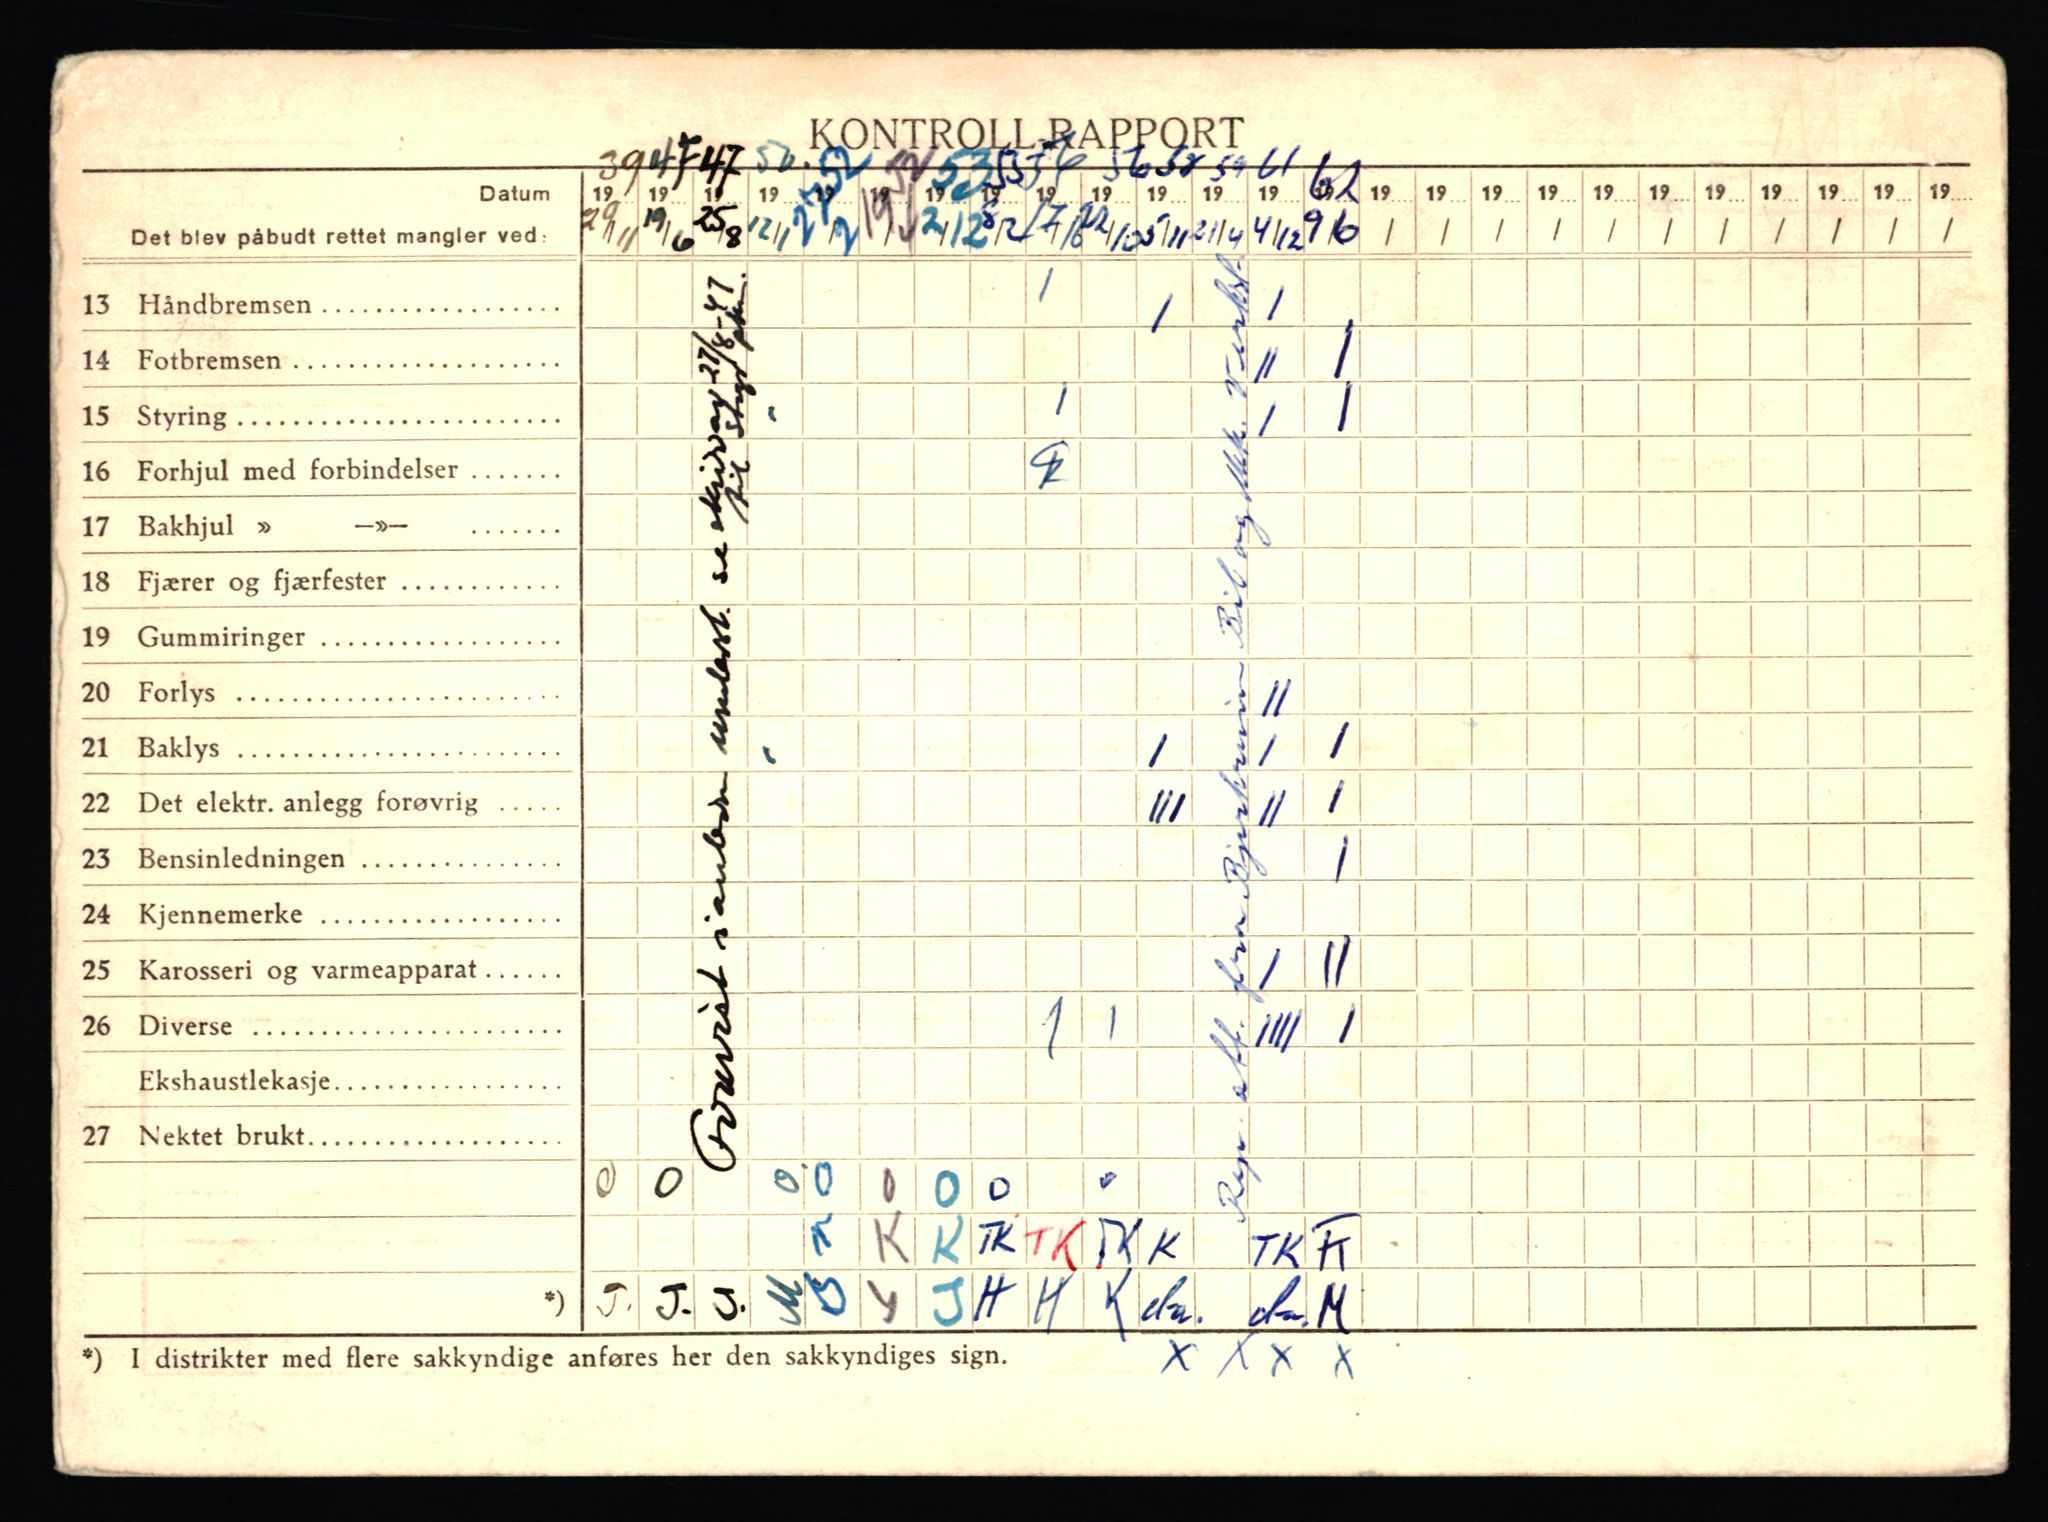 KONTROLL-RAPPORT
39 47 47 52 53 56 58 59 61 62
Datum 19 19 19 19 19 19 19 19 19 19 19 19 19 19 19 19 19 19 19 19 19 19 19 19 19
Det blev påbudt rettet mangler ved: 29/11 19/6 25/8 12/1 2/12 8/12 17/10 22/10 5/11 21/4 4/12 9/6 / / / / / / / / / / /
13 Håndbremsen I I I
14 Fotbremsen II I
15 Styring I I I
16 Forhjul med forbindelser
17 Bakhjul » —»—
18 Fjærer og fjærfester
19 Gummiringer
20 Forlys II
21 Baklys I I I
22 Det elektr. anlegg forøvrig III II I
23 Bensinledningen I
24 Kjennemerke
25 Karosseri og varmeapparat I II
26 Diverse I I IIII I
Ekshaustlekasje
27 Nektet brukt
Forevist i
se
27/8-47
til
Rep. att. fra Bjerkreim Bil og Mek. Verkst.
0 0 0 0 0 0 0
K K TK TK TK K TK
J. J. J. M J H H K M
*)
*) I distrikter med flere sakkyndige anføres her den sakkyndiges sign.
x x x x